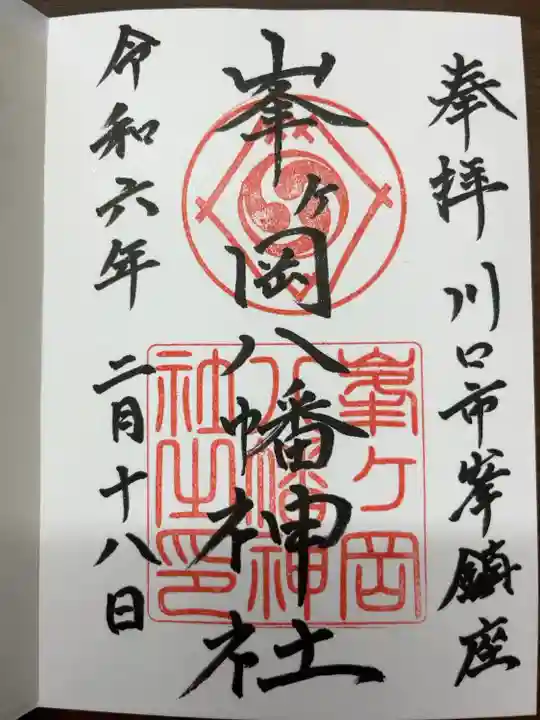 奉拝 川口市峯鎮座
峯ヶ岡八幡神社
峯ヶ岡
八幡神
社之印
令和六年 二月十八日